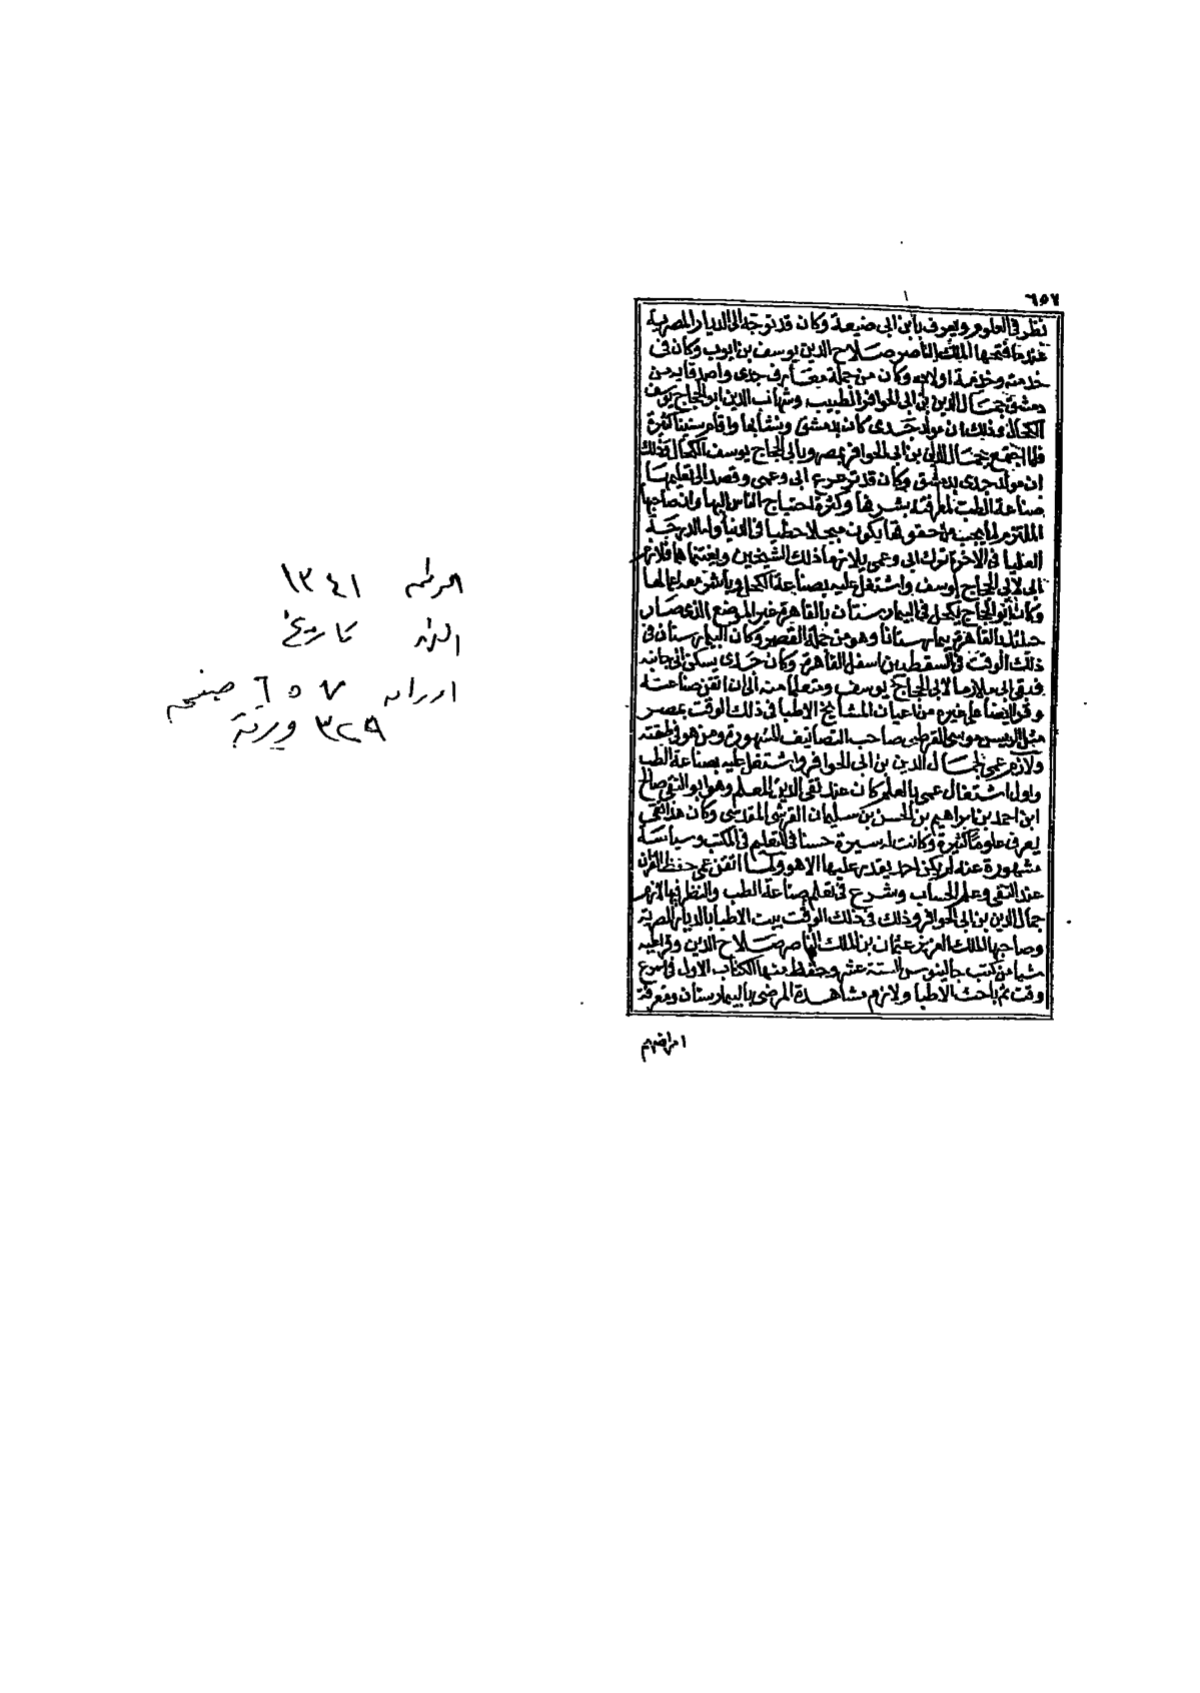 ٦٥٧
نظر في العلوم ويعرف بابن ابي ضيعة وكان قد توجه الى الديار المصرية
عندما فتحها الملك الناصر صلاح الدين يوسف بن ايوب وكان في
خدمته وخدمة اولاده وكان من جملة معارف جدى واصدقايه من
دمشق جمال الدين بن ابى الحوافر الطبيب وشهاب الدين ابو الحجاج يوسف
الكحال وذلك ان مولد جدى كان بدمشق ونشأ بها واقام سنينا كثيرة
فلما اجتمع بجمال الدين بن ابى الحوافر بمصر وبابى الحجاج يوسف الكحال وذلك
ان مولد جدى بدمشق وكان قد ترعرع ابى وعمى وقصد الى تعليمهما
صناعة الطب لمعرفته بشرفها وكثرة احتياج الناس اليها وان صاحبها
الملتزم لما يجب من حقوقها يكون مبجلا حظيا في الدنيا وله الدرجة
العليا في الاخرة ترك ابى وعمى يلازما ذلك الشيخين ويغتنماهما فلازم
ابى لابى الحجاج يوسف واشتغل عليه بصناعة الكحل وباشر معه اعمالها
وكان ابو الحجاج يكحل في البيمارستان بالقاهرة غير الموضع الذى صار
حينئذ بالقاهرة بيمارستانا وهو من جملة القصر وكان البيمارستان في
ذلك الوقت في السقطيين اسفل القاهرة وكان جدى يسكن الى جانبه
فبقى ابى ملازما لابى الحجاج يوسف ومتعلما منه الى ان اتقن صناعته
وقرا ايضا على غيره من اعيان المشايخ الاطبا في ذلك الوقت بمصر
مثل الرييس موسى القرطبى صاحب التصانيف المشهورة ومن هو في طبقته
ولازم عمى لجمال الدين بن ابى الحوافر واشتغل عليه بصناعة الطب
واول اشتغال عمى بالعلم كان عند تقى الدين المعلم وهو ابو التقى صالح
ابن احمد بن ابراهيم بن الحسن بن سليمان القرشى المقدسى وكان هذا التقى
يعرف علوما كثيرة وكانت له سيرة حسنا في التعليم في المكتب وسياسة
مشهورة عنه لم يكن احد يقدر عليها الا هو ولما اتقن عمى حفظ القرآن
عند التقى وعلم الحساب وشرع في تعلم صناعة الطب والنظر فيها لازم
جمال الدين بن ابى الحوافر وذلك في ذلك الوقت بيت الاطبا بالديار المصرية
وصاحبها الملك العزيز عثمان بن الملك الناصر صلاح الدين وقرا عليه
شيا من كتب جالينوس الستة عشر وحفظ منها الكتاب الاول في اسرع
وقت ثم باحث الاطبا ولازم مشاهدة المرضى بالبيمارستان ومعرفة
امراضهم
١٣٤١
تاريخ
اوراقه ٦٥٧ صفحه
٣٢٩ ورقة